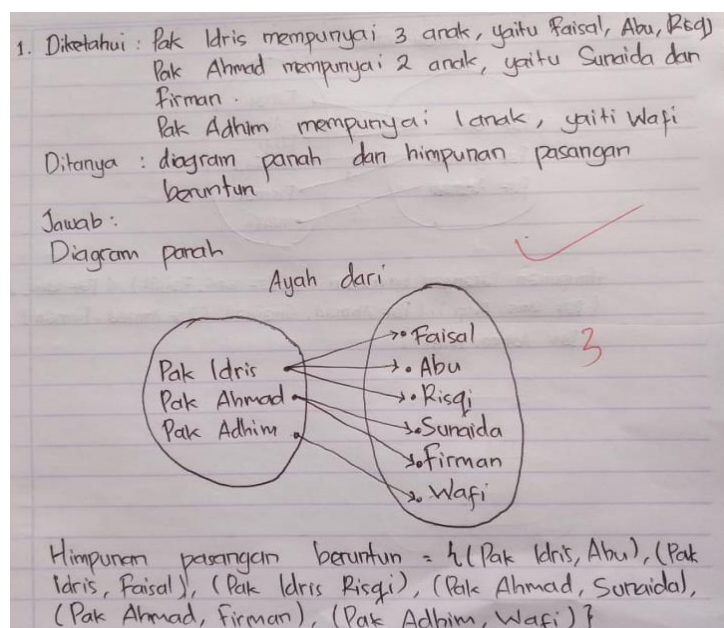 1. Diketahui : Pak Idris mempunyai 3 anak, yaitu Faisal, Abu, Risqi
Pak Ahmad mempunyai 2 anak, yaitu Sunaida dan
Firman.
Pak Adhim mempunyai 1 anak, yaiti Wafi
Ditanya : diagram panah dan himpunan pasangan
beruntun
Jawab :
Diagram panah
Ayah dari
Faisal
3
Pak Idris
Abu
Pak Ahmad
Risqi
Pak Adhim
Sunaida
Firman
Wafi
Himpunan pasangan beruntun = {(Pak Idris, Abu), (Pak
Idris, Faisal), (Pak Idris Risqi), (Pak Ahmad, Sunaida),
(Pak Ahmad, Firman), (Pak Adhim, Wafi)}